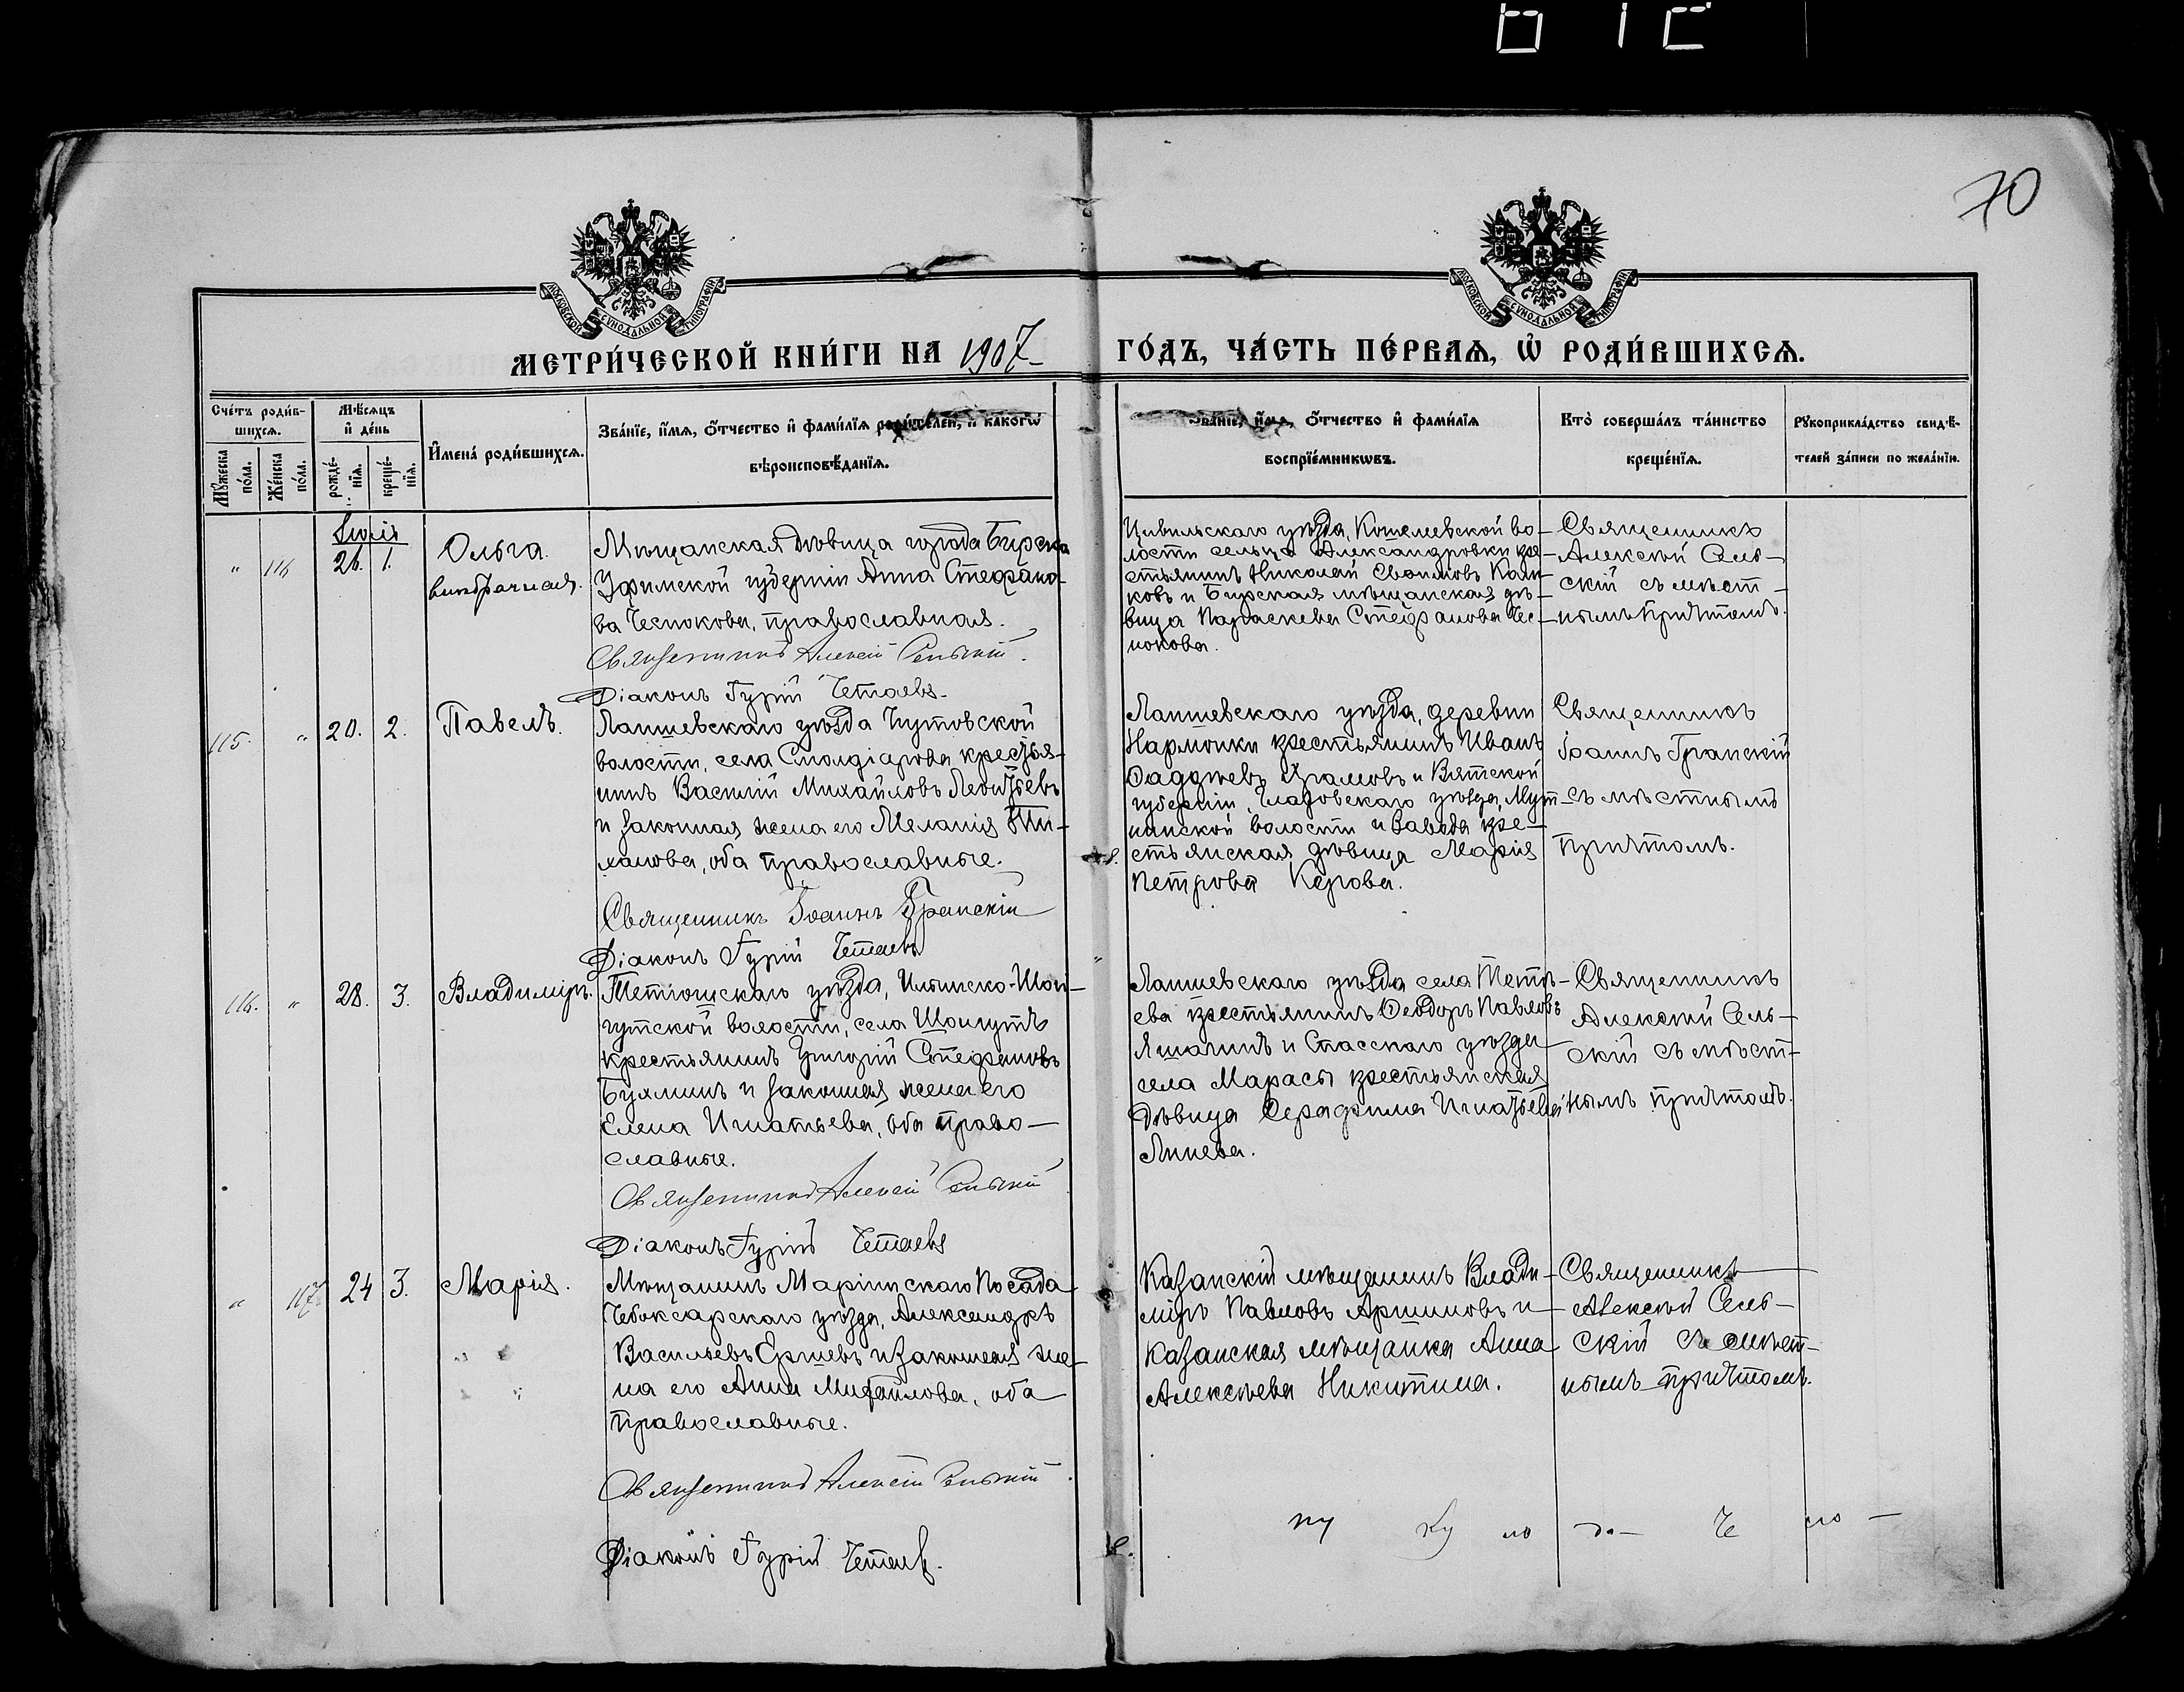 70
МОСКОВСКОЙ СѴНОДАЛЬНОЙ ТИПОГРАФІИ
МОСКОВСКОЙ СѴНОДАЛЬНОЙ ТИПОГРАФІИ
МЕТРИ́ЧЕСКОЙ КНИ́ГИ НА 1907 ГО́ДЪ, ЧА́СТЬ ПЕ́РВАЯ, Ѡ҆ РОДИ́ВШИХСЯ.
Сче́тъ роди́вшихся.
Мꙋ́жеска по́ла.
Же́нска по́ла.
Мѣ́сяцъ и҆ де́нь
рожде́нїя.
креще́нїя.
И҆мена̀ роди́вшихся.
Зва́нїе, и҆́мя, ѻ҆́тчество и҆ фами́лїя роди́телей, и҆ како́гѡ
вѣ́роисповѣ́данїя.
Зва́нїе, и҆́мя, ѻ҆́тчество и҆ фами́лїя
воспрїе́мникѡвъ.
Кто̀ соверша́лъ та́инство
креще́нїя.
Рꙋкоприкла́дство свидѣ́-
телей за́писи по жела́нїю.
Іюль
" 116 26. 1.
Ольга
внѣбрачная.
Мѣщанская дѣвица города Бирска
Уфимской губерніи Анна Стефано-
ва Чеснокова, православная.
Священникъ Алексій Сельскій.
Діаконъ Гурій Четаевъ.
Цивильскаго уѣзда, Кошелевской во-
лости сельца Александровки кре-
стьянинъ Николай
ковъ и Бирская мѣщанская дѣ-
вица Параскева Стефанова Чес-
нокова.
Священникъ
Алексѣй Сель-
скій съ мѣст-
нымъ причтомъ.
115. " 20. 2.
Павелъ.
Лаишевскаго уѣзда Чутовской
волости, села Смолдіярова крестья-
нинъ Василій Михайловъ Леонтьевъ
и законная жена его Меланія
оба православные.
Священникъ Іоаннъ Гранскій
Діаконъ Гурій Четаевъ
Лаишевскаго уѣзда, деревни
Нармонки крестьянинъ Иванъ
Ѳаддѣевъ Храмовъ и Вятской
губерніи, Глазовскаго уѣзда,
волости и завода кре-
стьянская дѣвица Марія
Петрова Керова.
Священникъ
Іоаннъ Гранскій
съ мѣстнымъ
причтомъ.
116. " 28. 3.
Владиміръ.
Тетюшскаго уѣзда, Ильинско-Шон-
гутской волости, села Шонгутъ
крестьянинъ Григорій Стефановъ
Буялинъ и законная жена его
Елена Игнатьева, оба право-
славные.
Священникъ Алексій Сельскій
Діаконъ Гурій Четаевъ
Лаишевскаго уѣзда села Тетѣ-
ева крестьянинъ Ѳеодоръ Павловъ
Яшагинъ и Спасскаго уѣзда
села Марасы крестьянская
дѣвица Серафима Игнатьева
Янаева.
Священникъ
Алексѣй Сель-
скій съ мѣст-
нымъ причтомъ.
" 117 24 3.
Марія.
Мѣщанинъ Маріинскаго Посада
Чебоксарскаго уѣзда, Александръ
Васильевъ Ершевъ и законная же-
на его Анна Михайлова, оба
православные.
Священникъ Алексій Сельскій.
Діаконъ Гурій Четаевъ.
Казанскій мѣщанинъ Влади-
міръ Павловъ Аршиновъ и
Казанская мѣщанка Анна
Алексѣева Никитина.
Священникъ
Алексѣй Сель-
скій съ мѣст-
нымъ причтомъ.